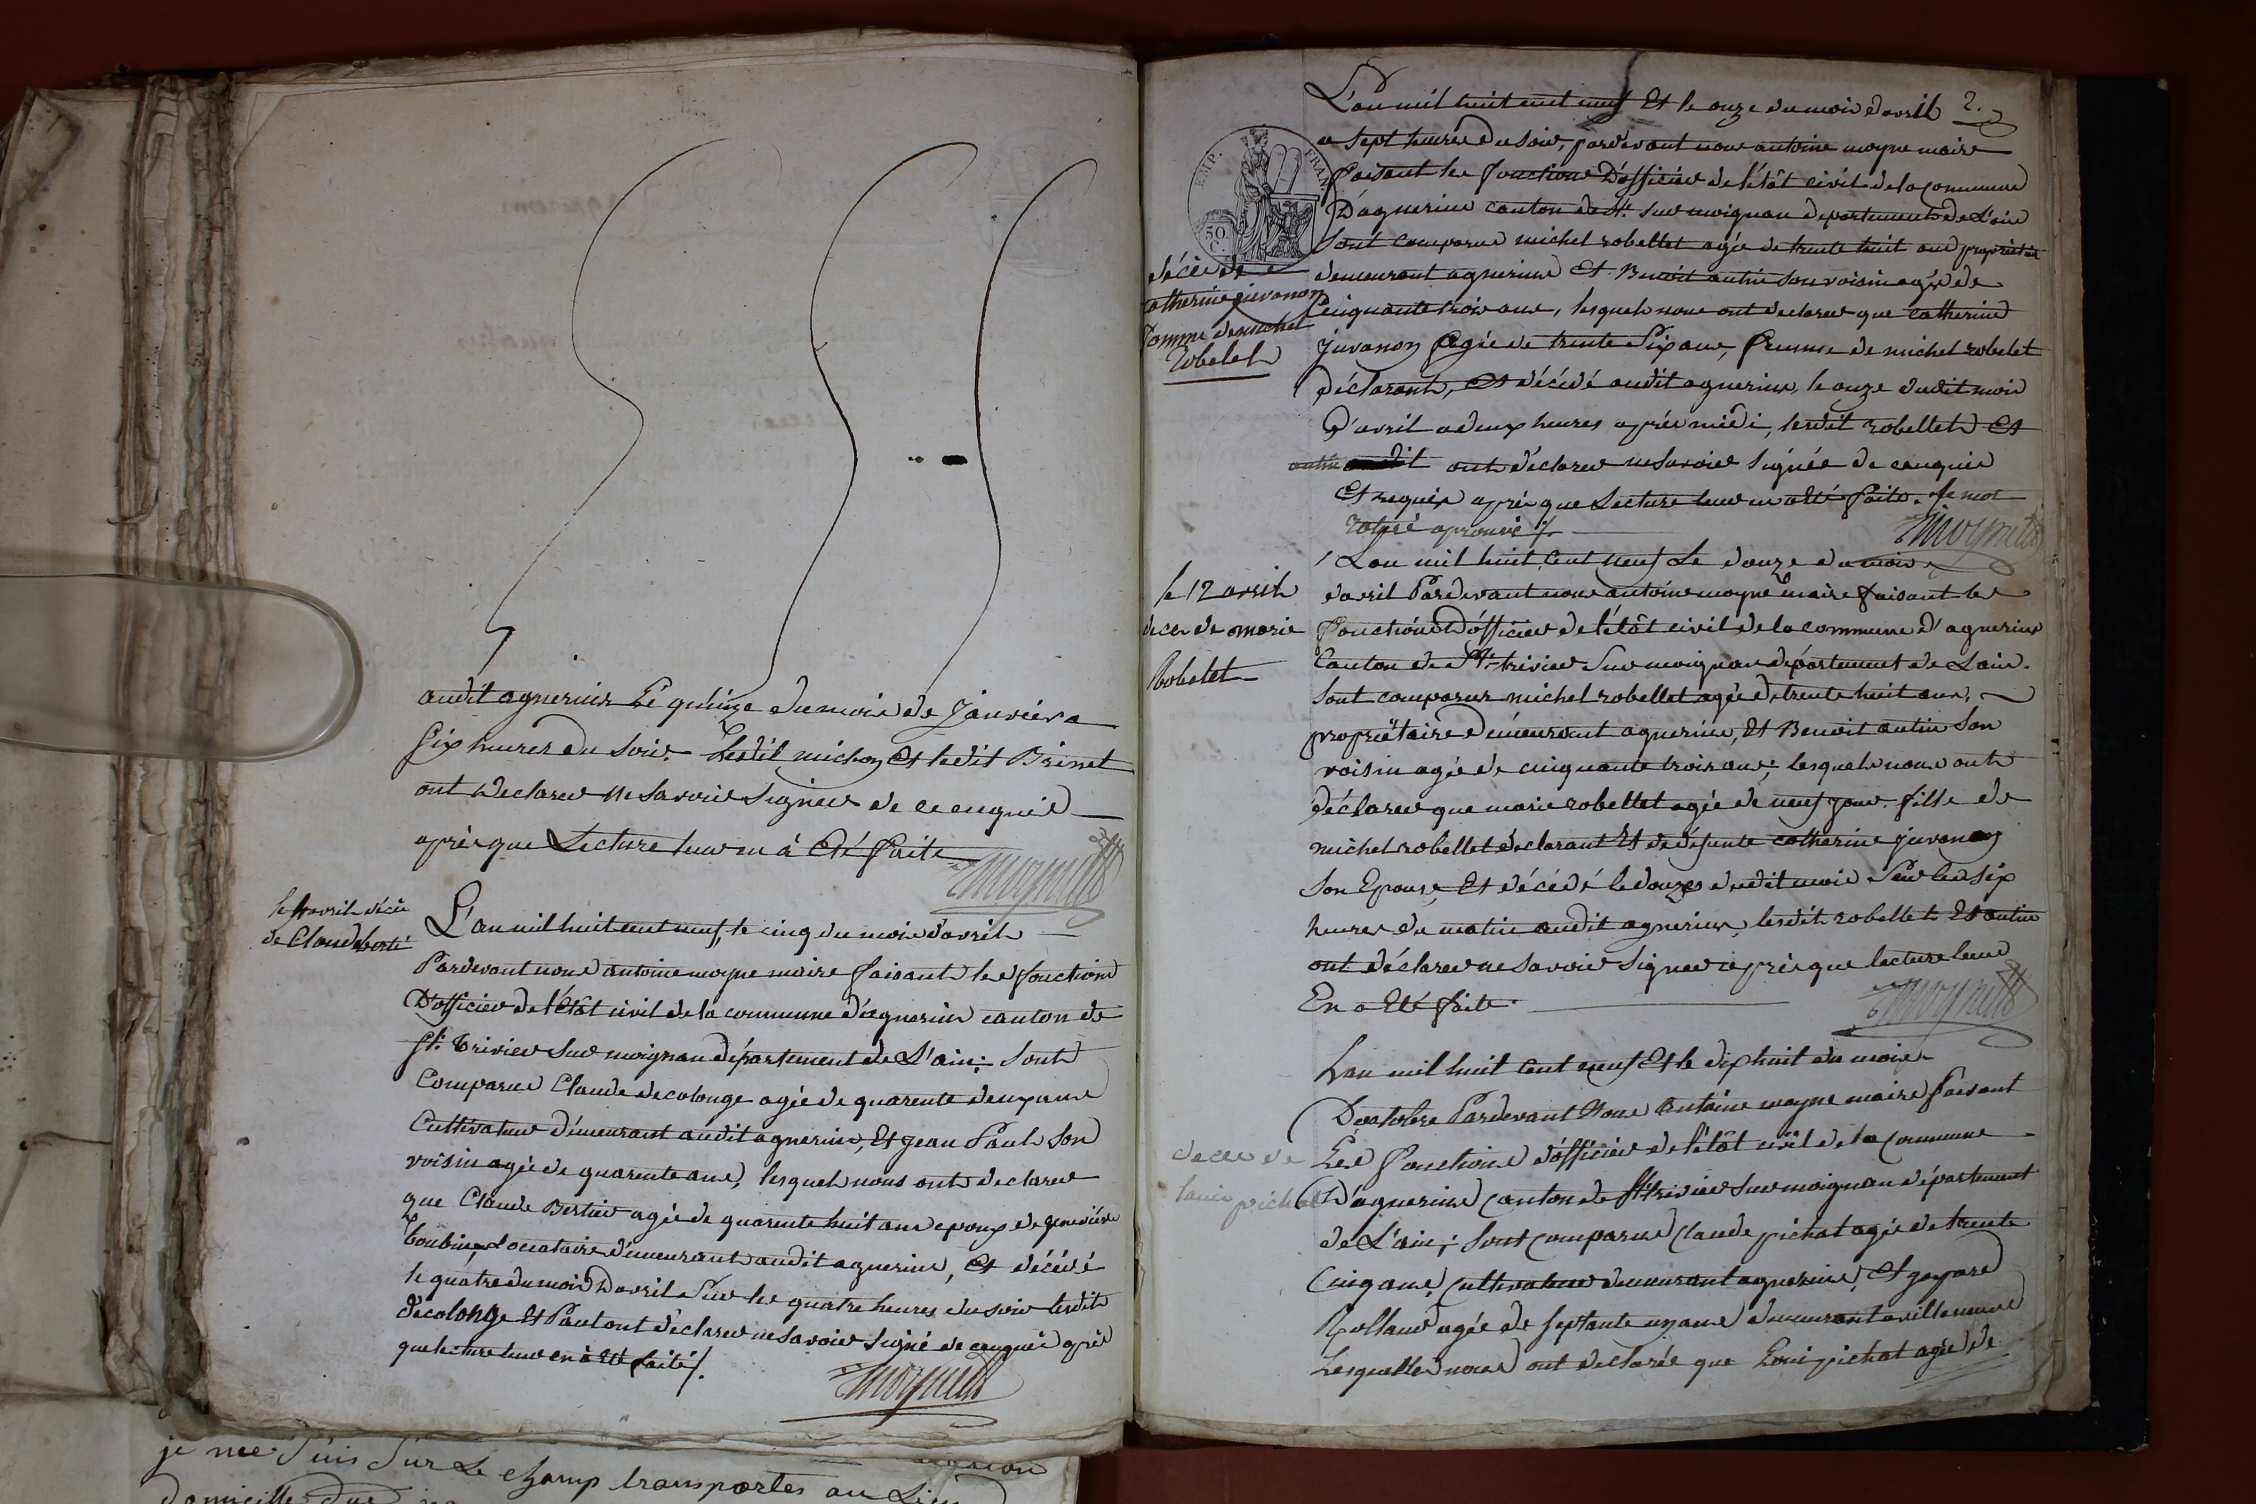 audit agnerins Le quinze du mois de Janvier a
six heures du soir. Lesdit michon Et ledit Brinet
ont declarer ne savoir signer de ce enquis
après que Lecture leur en à Eté faite
le 4 avril décè
de Claude berti
L'an mil huit cent neuf, le cinq du mois d'avril
Pardevant nous antoine moyne maire faisant les fonctions
D'officier de l'étât civil de la commune d'agnerins canton de
St. Trivier sur moignan département de L'ain; sont
Comparus Claude decolonge agée de quarente deux ans
Cultivateur démeurant audit agnerins, Et jean Paul son
voisin agée de quarente ans, lesquels nous ont declarer
que Claude Bertier agée de quarente huit ans epoux de genevieve
locataire démeurant audit agnerins, Et décédé
le quatre du mois D'avril sur les quatre heures du soir lesdits
decolonge Et Paul ont déclarer ne savoir signé de ce enquis après
que lecture leur en à Eté faité /.
je me suis sur Le champ transportés au
domicille
2.
L'an mil huit cent neuf Et le onze du mois d'avril
a sept heures du soir, pardevant nous antoine moyne maire
faisant les fonctions D'officier de l'étât civil de la commune
D'agnerins canton de St. sur moignan département de L'ain
EMP. FRAN.
50 C.
sont comparus michel robellet agée de trente huit ans propriétaire
décès de
catherine juvanon
famme de michel
Robelet
demeurant agnerins Et Benoit autin son voisin agée de
Cinquante trois ans, lesquels nous ont declarer que catherine
juvanon agée de trente six ans, femme de michel robelet
déclarant, Et décédé audit agnerins, le onze dudit mois
D'avril a deux heures après midi, lesdit robellet Et
autin ont déclarer ne savoir signée de ce enquis
Et requis après que Lecture leur en a Eté faite. le mot
rayé aprouvé /.
L'an mil huit Cent neuf Le douze du mois
le 12 avril
deces de marie
Robelet
d'avril Pardevant nous antoine moyne maire faisant les
fonctions d'officier de l'étât civil de la commune d'agnerins
Canton de St. trivier sur moignan département de L'ain.
sont comparus michel robellet agée de trente huit ans,
propriétaire démeurant agnerins, Et Benoit autin son
voisin agée de cinquante trois ans; lesquels nous ont
déclarer que marie robellet agée de neuf jour fille de
michel robellet déclarant Et de défunte catherine juvanon
son Epouse, Et décédé le douze dudit mois sur les six
heures du matin audit agnerins, lesdit robellet Et autin
ont déclarer ne savoir signer après que lecture leur
En a Eté faite.
L'an mil huit Cent neuf Et le dix huit du mois
D'octobre Pardevant Nous Antoine moyne maire faisant
deces de
Louis pichat
Les fonctions d'officier de l'étât civil de la Commune
D'agnerins Canton de St. trivier sur moignan département
de L'ain; sont comparus Claude pichat agée de trente
Cinq ans, Cultivateur demeurant agnerins, Et gaspard
Rolland agée de septante un ans demeurant a villeneuve
Lesquelles nous ont declarée que Louis pichat agée de